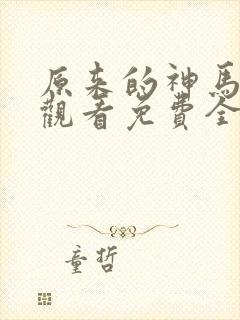 原来的神馬
觀看免費全
童哲